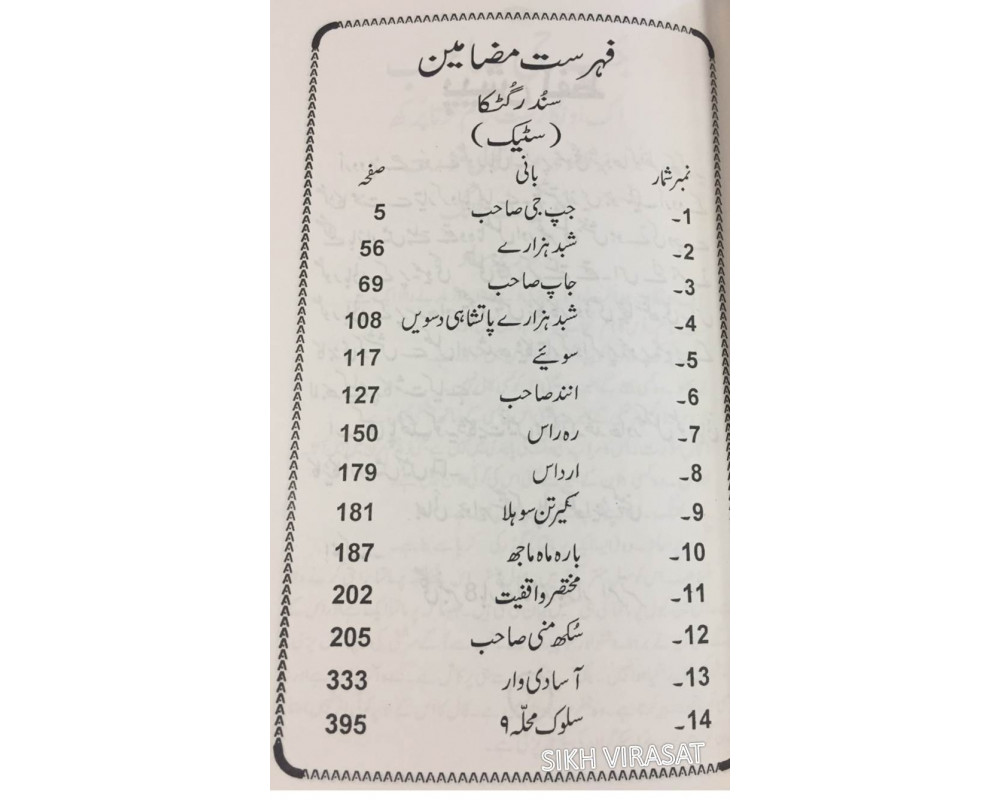 فہرست مضامین
سُندر گُٹکا
(سٹیک)
نمبر شمار بانی صفحہ
1۔ جپ جی صاحب 5
2۔ شبد ہزارے 56
3۔ جاپ صاحب 69
4۔ شبد ہزارے پاتشاہی دسویں 108
5۔ سوئیے 117
6۔ انند صاحب 127
7۔ رہ راس 150
8۔ ارداس 179
9۔ کیرتن سوہلا 181
10۔ بارہ ماہ ماجھ 187
11۔ مختصر واقفیت 202
12۔ سُکھ منی صاحب 205
13۔ آسا دی وار 333
14۔ سلوک محلّہ ۹ 395
SIKH VIRASAT